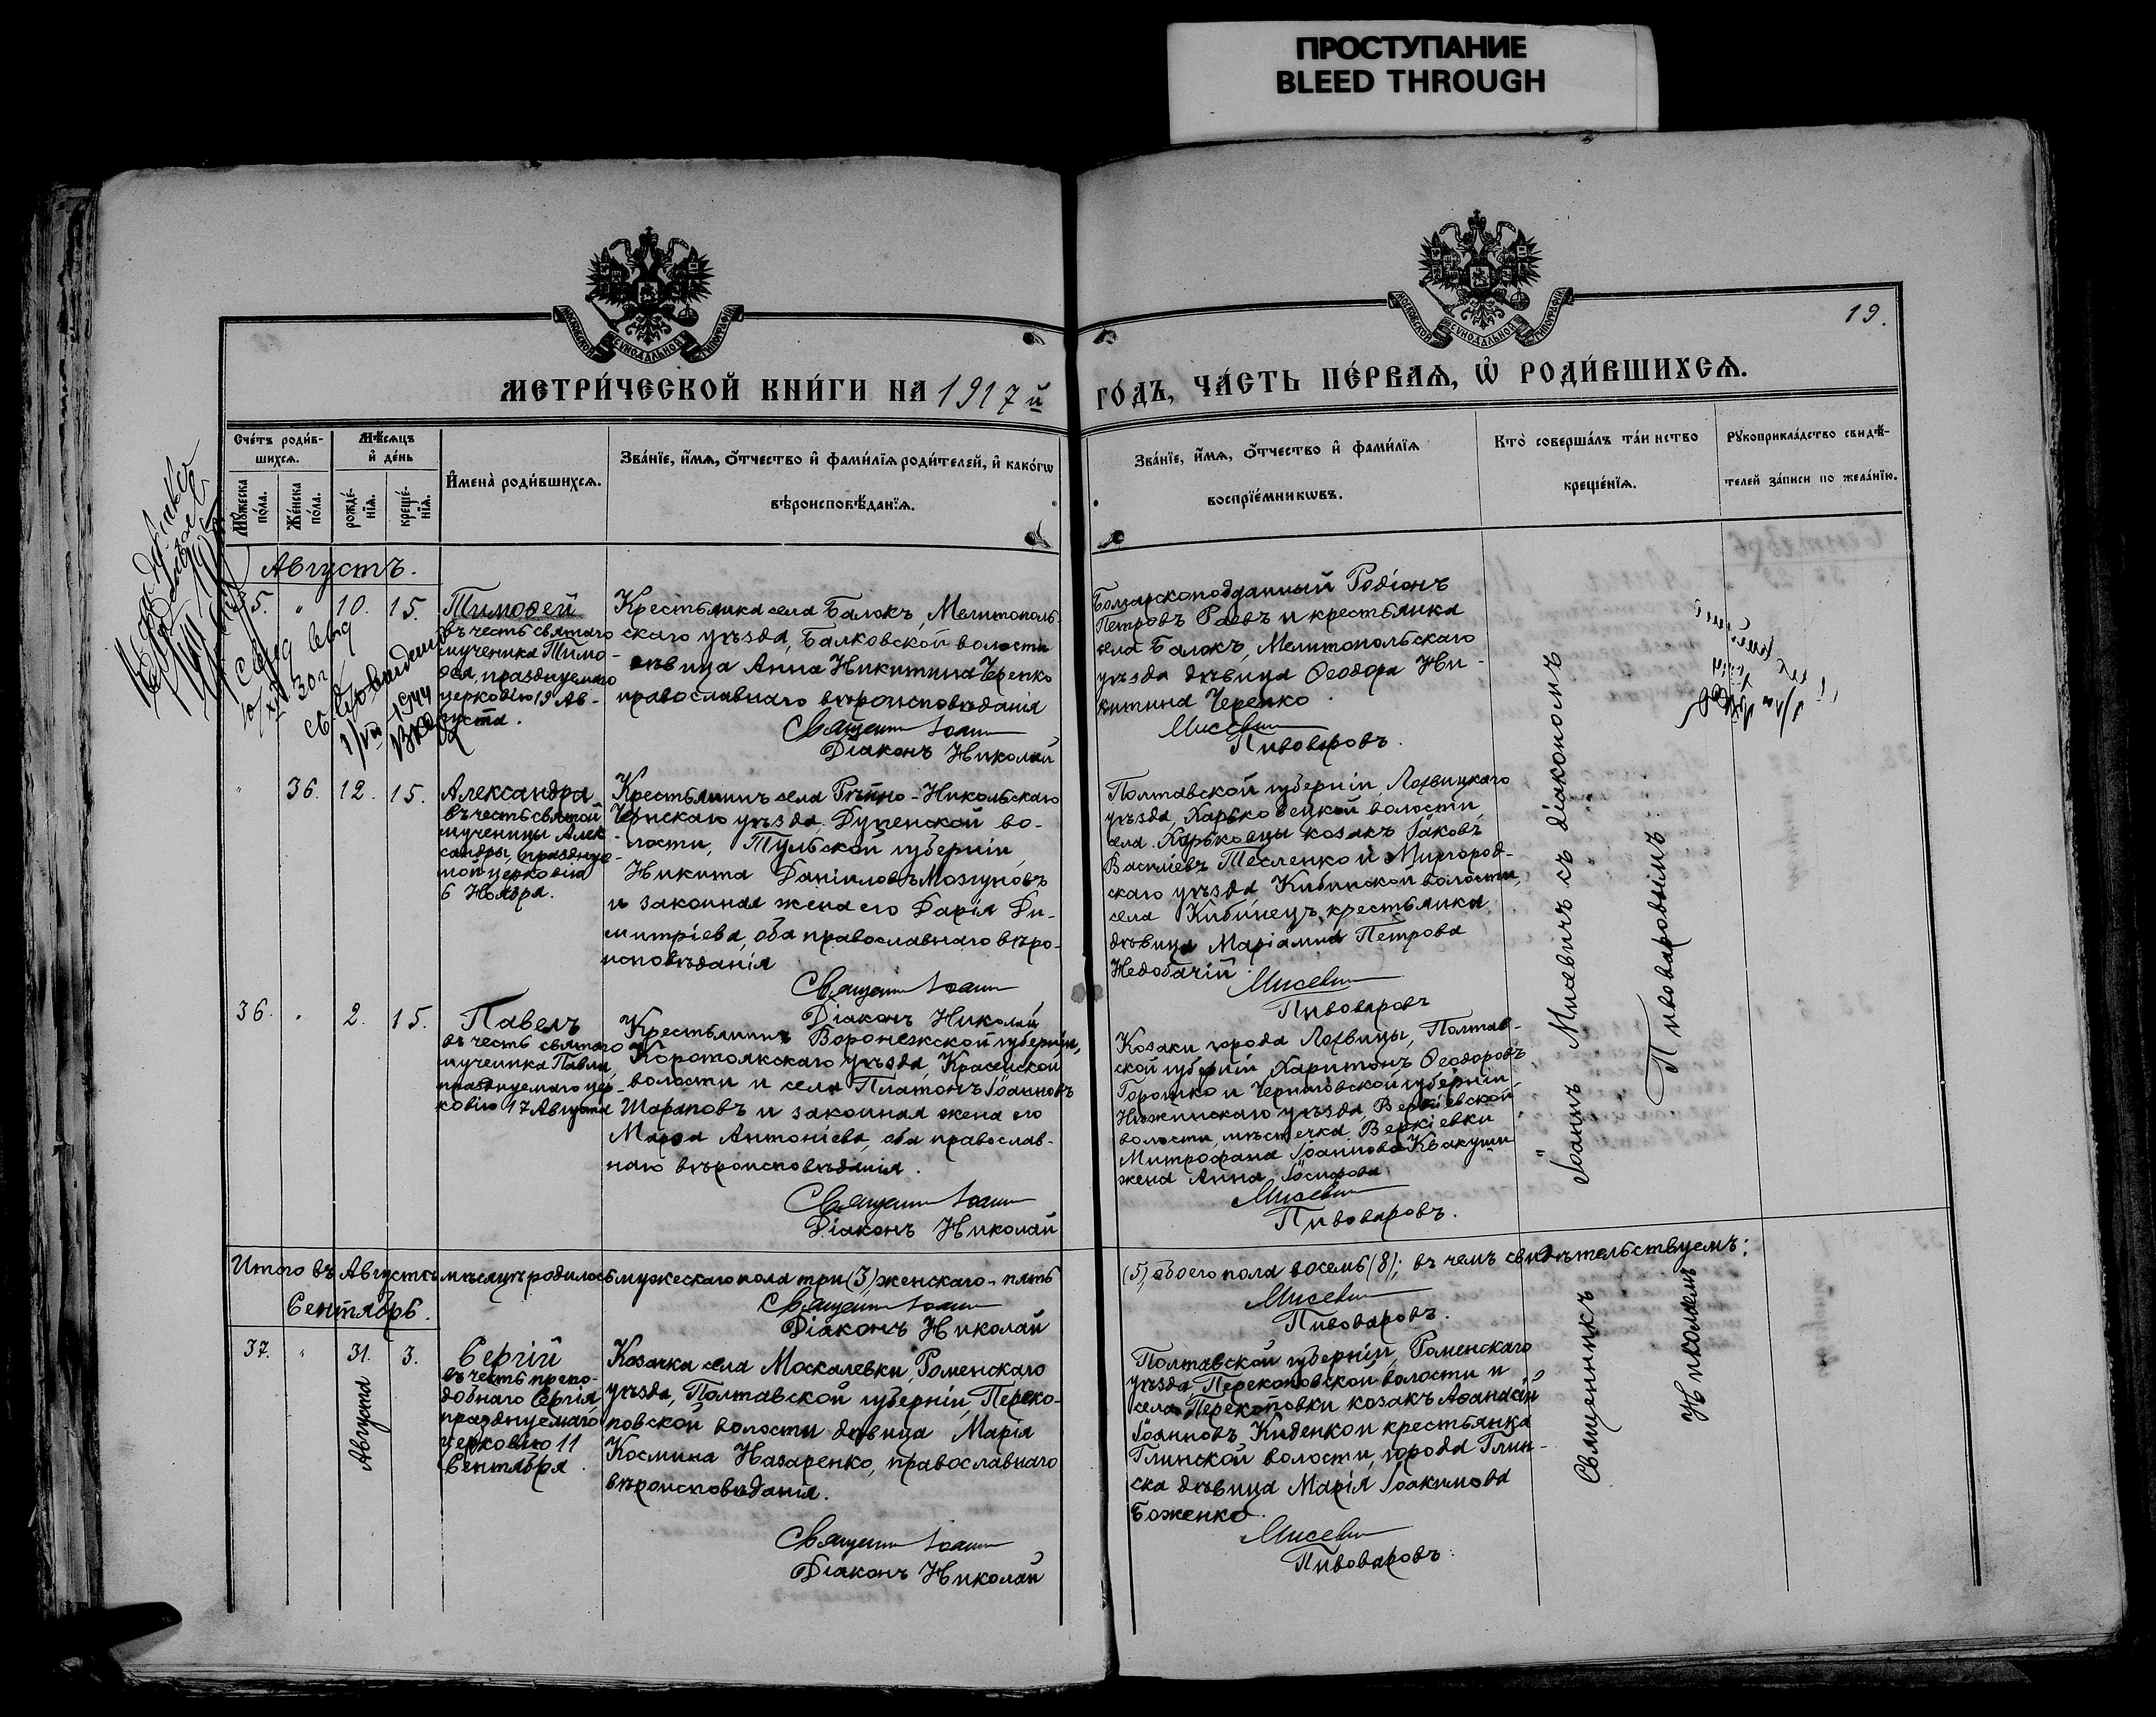 ПРОСТУПАНИЕ
BLEED THROUGH
МОСКОВСКОЙ СУНОДАЛЬНОЙ ТИПОГРАФІИ
МОСКОВСКОЙ СУНОДАЛЬНОЙ ТИПОГРАФІИ
19.
МЕТРИ́ЧЕСКОЙ КНИ́ГИ НА 1917 й
ГО́ДЪ, ЧА́СТЬ ПЕ́РВАѦ, Ѡ РОДИ́ВШИХСѦ.
Сче́тъ роди́в-
шихсѧ.
Мꙋжеска по́ла.
Же́нска по́ла.
Мѣ́сѧцъ
и҆ де́нь
рожде́-
нїѧ.
креще́-
нїѧ.
И҆мена̀ роди́вшихсѧ.
Зва́нїе, и҆́мѧ, ѻ҆́тчество и҆ фами́лїѧ роди́телей, и҆ како́гѡ
вѣроисповѣ́данїѧ.
Зва́нїе, и҆́мѧ, ѻ҆́тчество и҆ фами́лїѧ
воспрїе́мникѡвъ.
Кто̀ соверша́лъ та́инство
креще́нїѧ.
Рꙋкоприкла́дство свидѣ́-
телей за́писи по жела́нїю.
Августъ.
35. " 10. 15.
Тимоѳей
въ честь святаго
мученика Тимо-
ѳея, празднуемаго
церковію 19 Ав-
густа.
Крестьянка села Балокъ, Мелитополь-
скаго уѣзда, Балковской волости
дѣвица Анна Никитина Черенко
православнаго вѣроисповѣданія
Священн Іоанн
Діаконъ Николай
Болгарскоподданный Родіонъ
Петровъ Раевъ и крестьянка
села Балокъ, Мелитопольскаго
уѣзда дѣвица Ѳеодора Ни-
китина Черенко
Мисевич
Пивоваровъ.
" 36. 12. 15.
Александра
въ честь святой
мученицы Алек-
сандры, праздну-
мой церковію
6 Ноября.
Крестьянинъ села Рѣпно-Никольскаго
Чернскаго уѣзда, Дупенской во-
лости, Тульской губерніи,
Никита Даніиловъ Мозгуновъ
и законная жена его Дарія Ди-
митріева, оба православнаго вѣро-
исповѣданія
Священн Іоанн
Діаконъ Николай
Полтавской губерніи, Лохвицкаго
уѣзда, Харьковецкой волости,
села Харьковцы козакъ Іаковъ
Василіевъ Тесленко и Миргород-
скаго уѣзда Кибинской волости,
села Кибинецъ, крестьянка
дѣвица Маріамна Петрова
Недобачій
Мисевич
Пивоваровъ
36. " 2. 15.
Павелъ
въ честь святаго
мученика Павла,
празднуемаго цер-
ковію 17 Августа
Крестьянинъ Воронежской губерніи,
Коротоякскаго уѣзда, Красенской
волости и села Платонъ Іоанновъ
Шараповъ и законная жена его
Марѳа Антоніева, оба православ-
наго вѣроисповѣданія.
Священн Іоанн
Діаконъ Николай
Козаки города Лохвицы, Полтав-
ской губерніи Харитонъ Ѳеодоровъ
Горошко и Черниговской губерніи
Нѣжинскаго уѣзда, Веркіевской
волости, мѣстечка Веркіевки
Митрофана Іоаннова Квакуши
жена Анна Іосифова
Мисевич
Пивоваровъ.
Итого въ Августѣ мѣсяцѣ родилось мужескаго пола три (3), женскаго - пять
(5), обоего пола восемь (8); въ чемъ свидѣтельствуемъ:
Священн Іоанн
Діаконъ Николай
Мисевич
Пивоваровъ.
Сентябрь.
37. " 31. 3.
Августа
Сергій
въ честь препо-
добнаго Сергія
празднуемаго
церковію 11
Сентября
Козачка села Москалевки, Роменскаго
уѣзда, Полтавской губерніи, Переко-
повской волости дѣвица Марія
Космина Назаренко, православнаго
вѣроисповѣданія.
Священн Іоанн
Діаконъ Николай
Полтавской губерніи, Роменскаго
уѣзда, Перекоповской волости и
села Перекоповки козакъ Аѳанасій
Іоанновъ Киденко и крестьянка
Глинской волости, города Глин-
ска дѣвица Марія Іоакимова
Боженко.
Мисевич
Пивоваровъ.
Священникъ Іоаннъ Мисевичъ съ діакономъ
Николаемъ Пивоваровымъ.